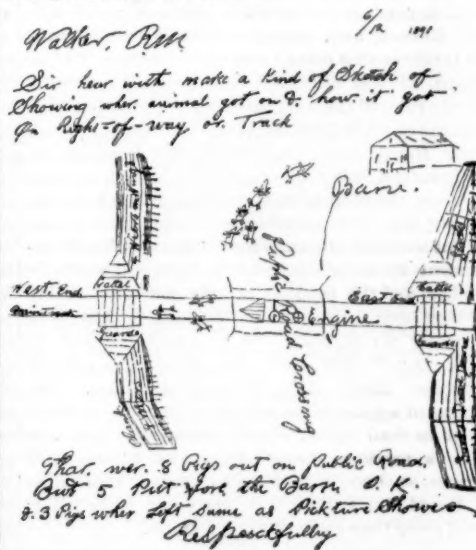 6/12 1898
Walker, RM
Sir hear with make a Kind of Sketch of
Showing wher. animal got on &. how. it got
on Right=of-way or. Track
Barn.
Public Road Crossing
West. End
East End
Main
Cattel
Guards
Cattel
Guards
Engine
Thar. wer. 8 Pigs out on Public Road.
But 5 Put fore the Barn O.K.
&. 3 Pigs wher Left same as Pickture Showes
Respesctfully